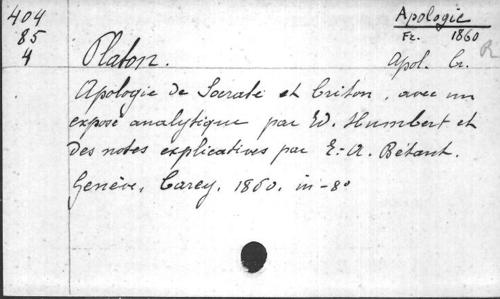 404
85
4
Apologie
Fr. 1860
Platon.
Apol. Cr.
R
Apologie de Socrate et Criton, avec un
exposé analytique par Ed. Humbert et
des notes explicatives par E.-A. Bétant.
Genève, Carey, 1860. in-8º